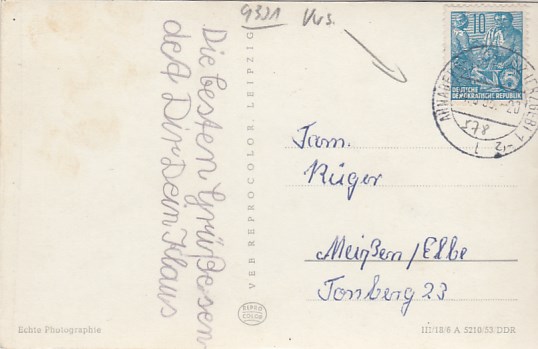 G331 Vws.
Die besten Grüße sen
det Dir Dein Klaus
VEB REPROCOLOR, LEIPZIG
REPRO
COLOR
10
5
DEUTSCHE
DEMOKRATISCHE REPUBLIK
Fam.
Rüger
Meißen/Elbe
Jonberg 23
Echte Photographie
III/18/6 A 5210/53 DDR